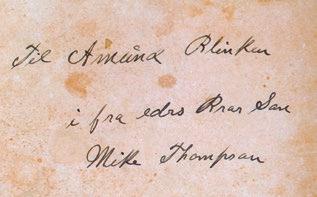 Til Amund Blinken
i fra edrs Brar San
Mike Thompson